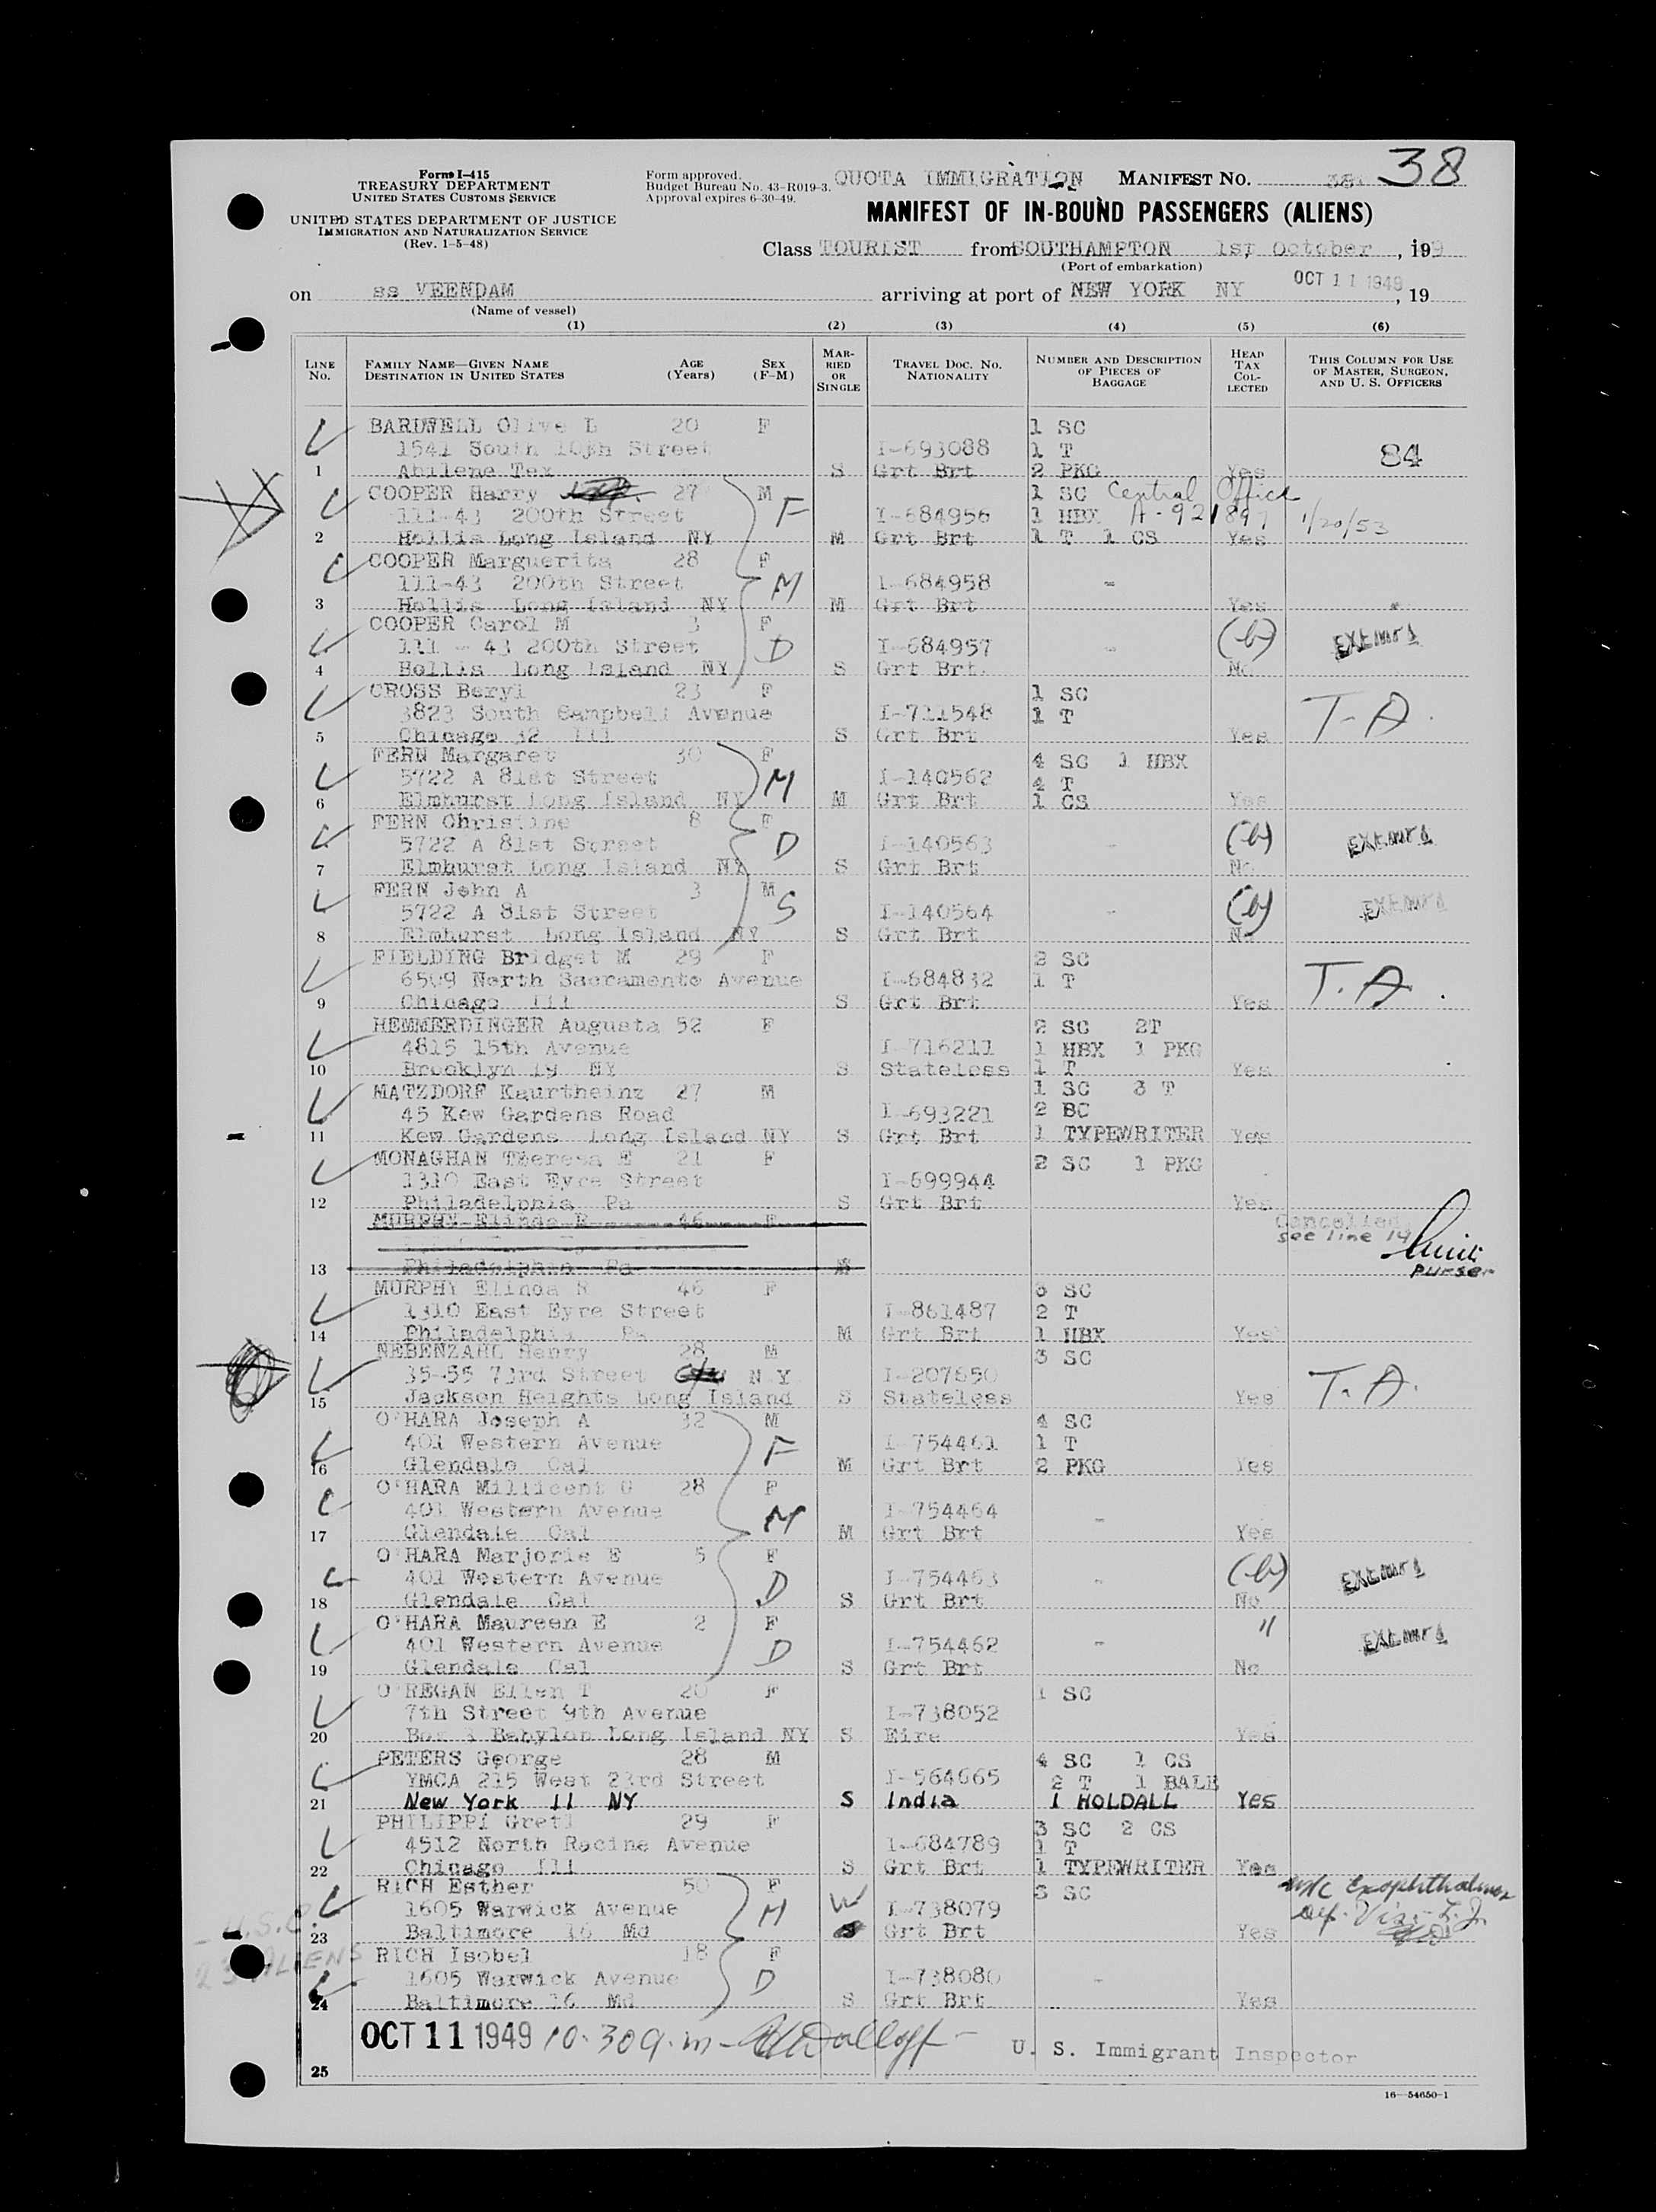 Form I-415
TREASURY DEPARTMENT
UNITED STATES CUSTOMS SERVICE
UNITED STATES DEPARTMENT OF JUSTICE
IMMIGRATION AND NATURALIZATION SERVICE
(Rev. 1-5-48)
Form approved.
Budget Bureau No. 43-R019-3.
Approval expires 6-30-49.
QUOTA IMMIGRATION MANIFEST No. 38
MANIFEST OF IN-BOUND PASSENGERS (ALIENS)
Class TOURIST from SOUTHAMPTON 1st October, 199
(Port of embarkation)
on ss VEENDAM arriving at port of NEW YORK NY OCT 11 1949, 19
(Name of vessel)
(1) (2) (3) (4) (5) (6)
LINE No. FAMILY NAME—GIVEN NAME DESTINATION IN UNITED STATES AGE (Years) SEX (F-M) MARRIED OR SINGLE TRAVEL DOC. NO. NATIONALITY NUMBER AND DESCRIPTION OF PIECES OF BAGGAGE HEAD TAX COLLECTED THIS COLUMN FOR USE OF MASTER, SURGEON, AND U. S. OFFICERS
BARDWELL Olive L 20 F 1 SC
1541 South 10th Street I-693088 1 T 84
1 Abilene Tex S Grt Brt 2 PKG Yes
COOPER Harry 27 M 1 SC Central Office
111-43 200th Street F I-684956 1 HBX A-921897 1/20/53
2 Hollis Long Island NY M Grt Brt 1 T 1 CS Yes
COOPER Marguerita 28 F
111-43 200th Street M I-684958 -
3 Hollis Long Island NY M Grt Brt Yes
COOPER Carol M 3 F
111 - 43 200th Street D I-684957 - (b) EXEMPT
4 Hollis Long Island NY S Grt Brt. No
CROSS Beryl 23 F 1 SC
3823 South Campbell Avenue I-711548 1 T T-A.
5 Chicago 32 Ill S Grt Brt Yes
FERN Margaret 30 F 4 SC 1 HBX
5722 A 81st Street M I-140562 4 T
6 Elmhurst Long Island NY M Grt Brt 1 CS Yes
FERN Christine 8 F
5722 A 81st Street D I-140563 - (b) EXEMPT
7 Elmhurst Long Island NY S Grt Brt No
FERN John A 3 M
5722 A 81st Street S I-140564 - (b) EXEMPT
8 Elmhurst Long Island NY S Grt Brt No
FIELDING Bridget M 29 F 2 SC
6509 North Sacramento Avenue I-684832 1 T T.A.
9 Chicago Ill S Grt Brt Yes
HEMMERDINGER Augusta 52 F 2 SC 2T
4815 15th Avenue I-716211 1 HBX 1 PKG
10 Brooklyn 19 NY S Stateless 1 T Yes
MATZDORF Kaurtheinz 27 M 1 SC 3 T
45 Kew Gardens Road I-693221 2 BC
11 Kew Gardens Long Island NY S Grt Brt 1 TYPEWRITER Yes
MONAGHAN Theresa E 21 F 2 SC 1 PKG
1310 East Eyre Street I-699944
12 Philadelphia Pa S Grt Brt Yes
MURPHY Elinda R 46 F Cancelled
see line 14
13 Philadelphia Pa purser
MURPHY Elinda R 46 F 3 SC
1310 East Eyre Street I-861487 2 T
14 Philadelphia Pa M Grt Brt 1 HBX Yes
NEBENZAHL Henry 28 M 3 SC
35-55 73rd Street N Y I-207650 T.A.
15 Jackson Heights Long Island S Stateless Yes
O'HARA Joseph A 32 M 4 SC
401 Western Avenue F I-754461 1 T
16 Glendale Cal M Grt Brt 2 PKG Yes
O'HARA Millicent G 28 F
401 Western Avenue M I-754464 -
17 Glendale Cal M Grt Brt Yes
O'HARA Marjorie E 5 F
401 Western Avenue D I-754463 - (b) EXEMPT
18 Glendale Cal S Grt Brt No
O'HARA Maureen E 2 F "
401 Western Avenue D I-754462 - EXEMPT
19 Glendale Cal S Grt Brt No
O'REGAN Ellen T 20 F 1 SC
7th Street 9th Avenue I-738052
20 Box 3 Babylon Long Island NY S Eire Yes
PETERS George 28 M 4 SC 1 CS
YMCA 215 West 23rd Street I-564665 2 T 1 BALE
21 New York 11 NY S India 1 HOLDALL Yes
PHILIPPI Gretl 29 F 3 SC 2 CS
4512 North Racine Avenue I-684789 1 T
22 Chicago Ill S Grt Brt 1 TYPEWRITER Yes
RICH Esther 50 F 3 SC M/C Exophthalmos
1605 Warwick Avenue M W I-738079 Def. Vis.
U.S.C. 23 Baltimore 16 Md Grt Brt Yes
23 ALIENS RICH Isobel 18 F
1605 Warwick Avenue D I-738080 -
24 Baltimore 16 Md S Grt Brt Yes
OCT 11 1949 10.30 a.m - U. S. Immigrant Inspector
25
16—54650-1